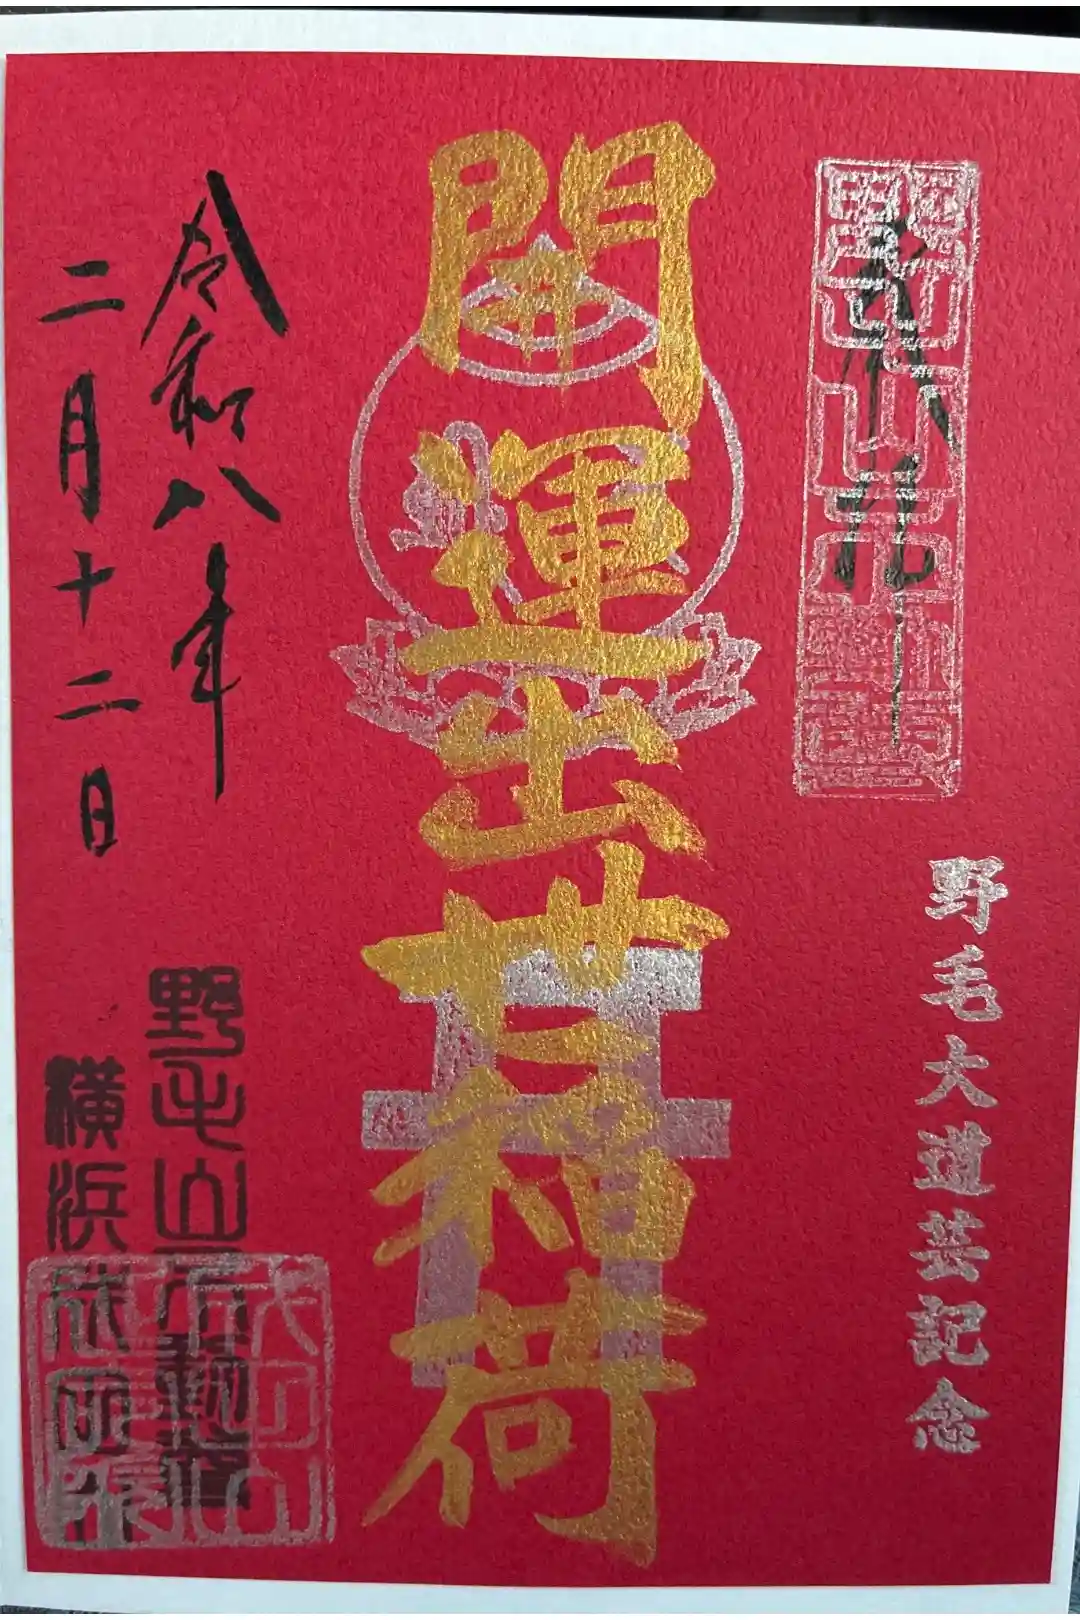 奉拝
野毛大道芸記念
開運出世稲荷
令和八年
二月十二日
野毛山
横浜成田山